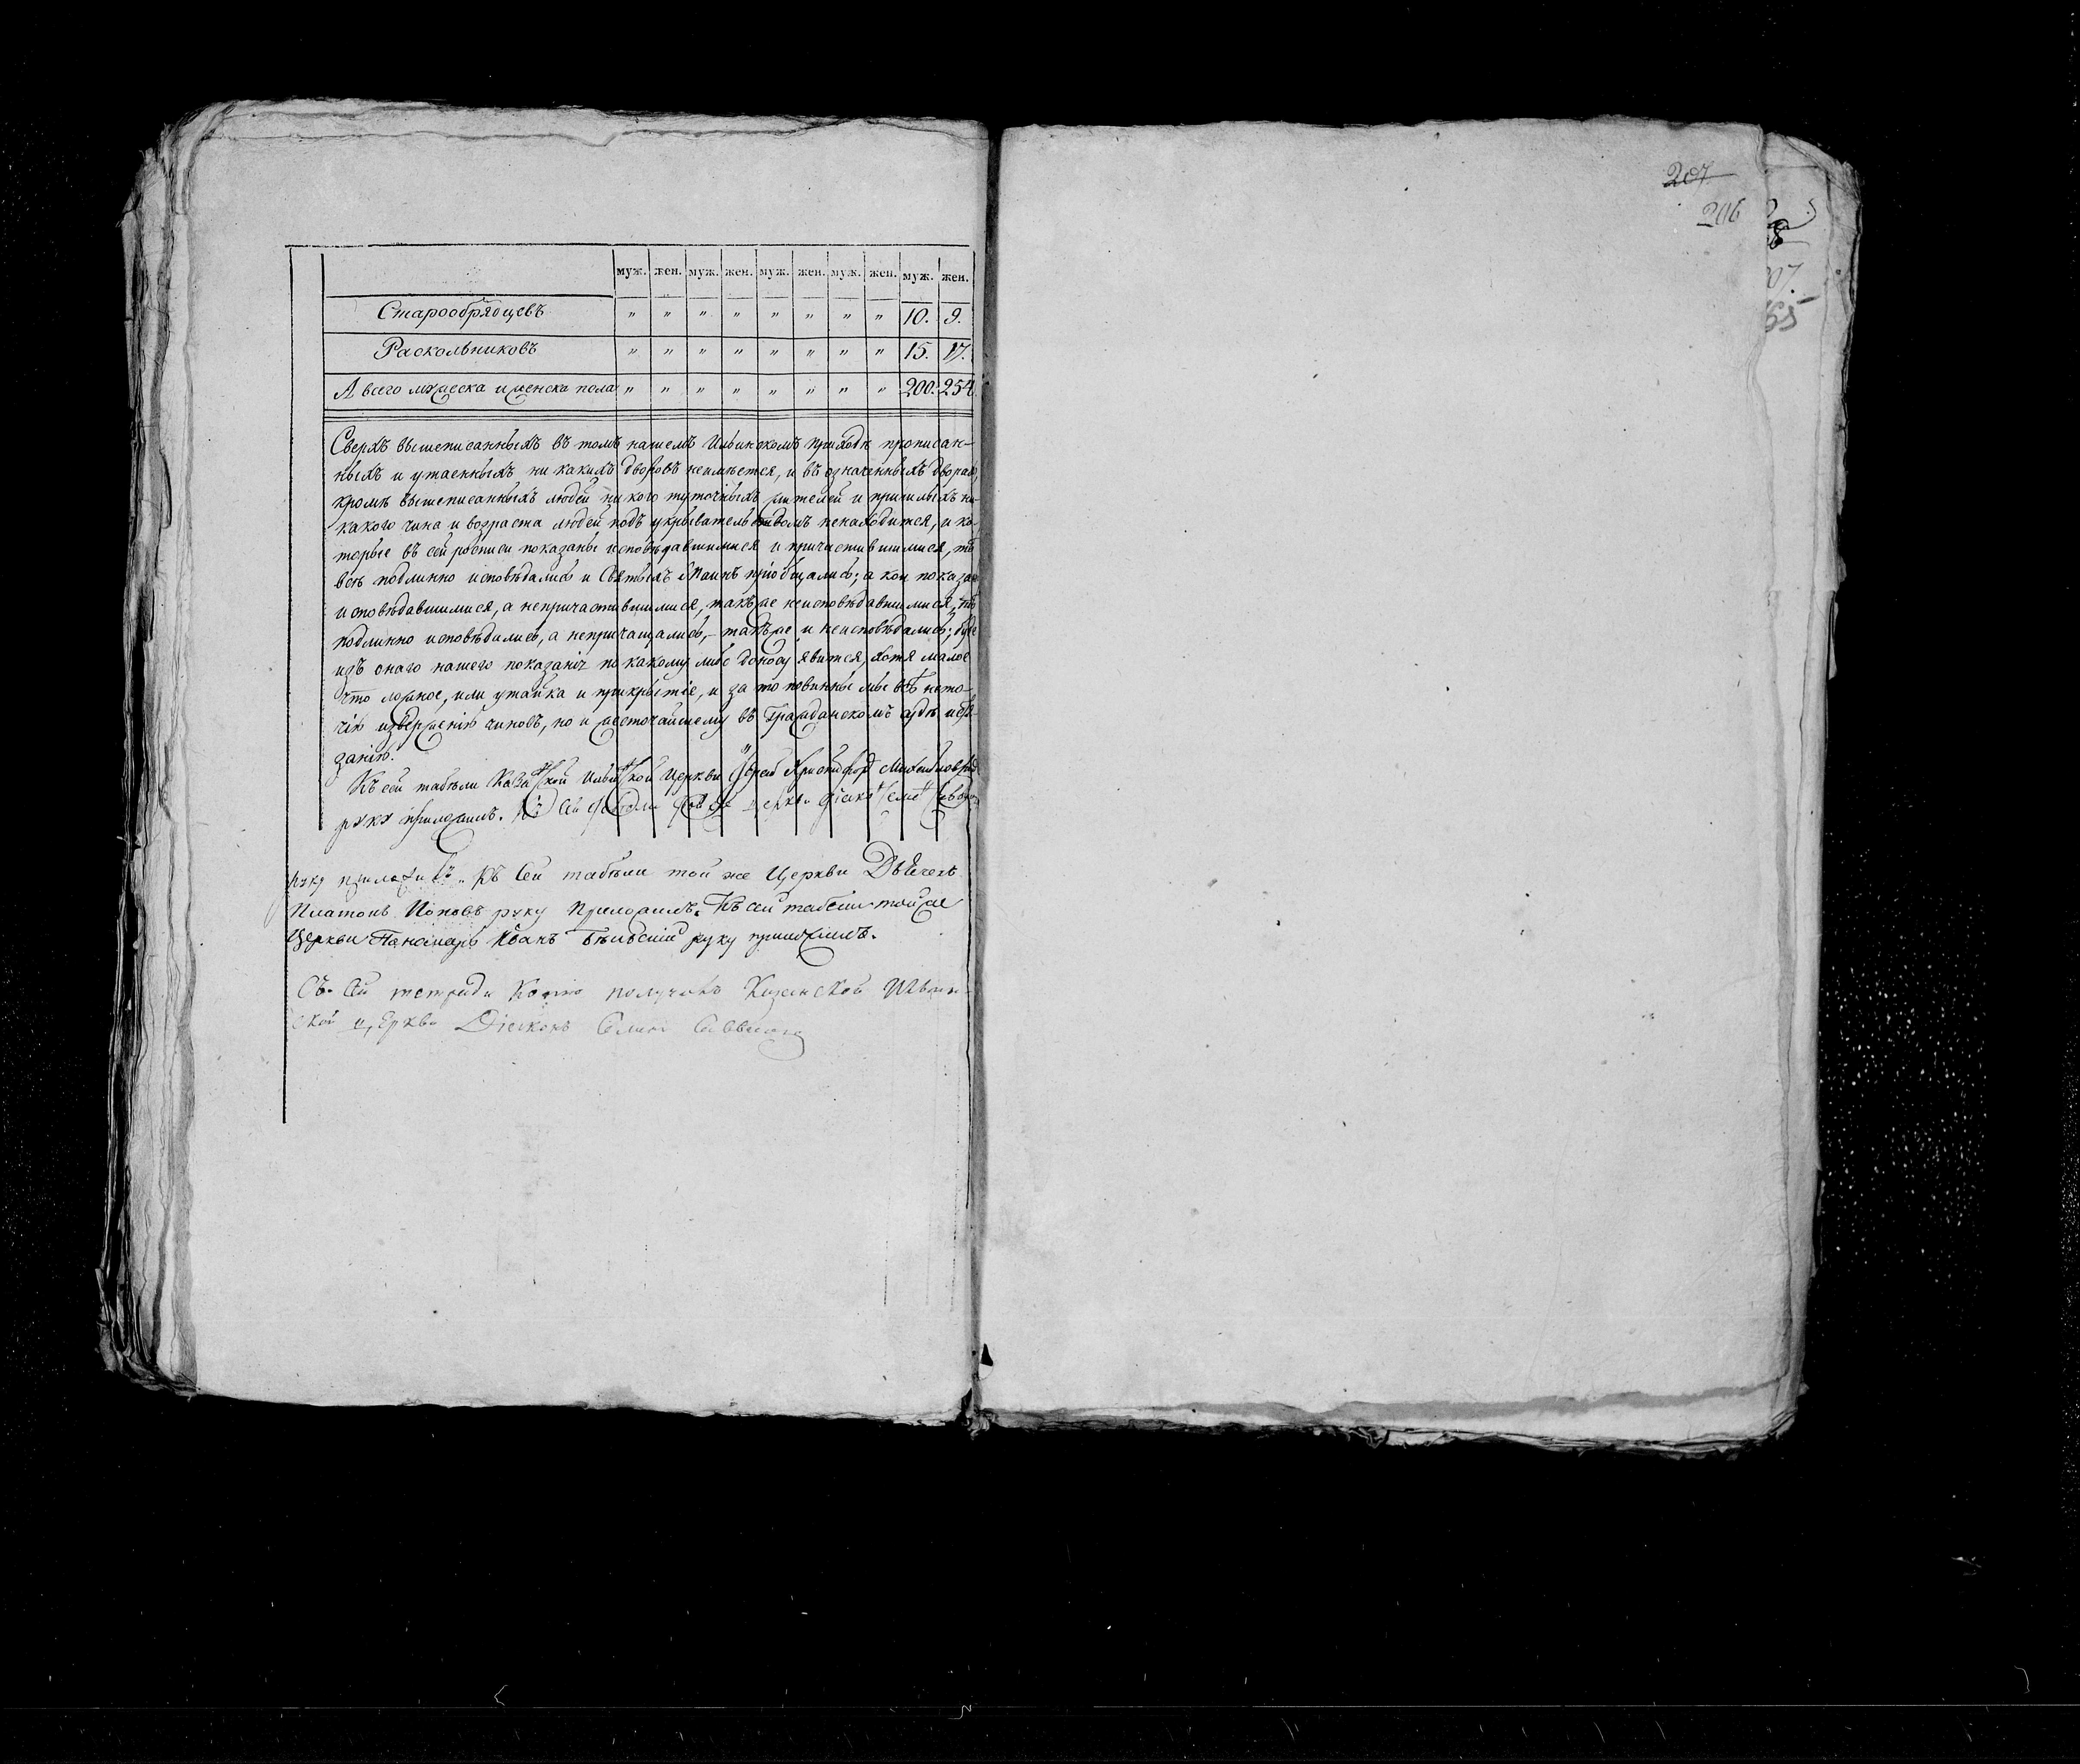 207
206
муж. жен. муж. жен. муж. жен. муж. жен. муж. жен.
Старообрядцевъ " " " " " " " " 10. 9.
Раскольниковъ " " " " " " " " 15. 17.
А всего мужеска и женска пола " " " " " " " " 200. 254.
Сверхъ вышеписанныхъ въ томъ нашемъ Ильинскомъ приходѣ прописан-
ныхъ и утаенныхъ ни какихъ дворовъ неимѣется, и въ означенныхъ дворахъ,
кромѣ вышеписанныхъ людей ни кого туточныхъ жителей и пришлыхъ ни-
какого чина и возраста людей подъ укрывательствомъ ненаходится, и ко-
торые въ сей росписи показаны исповѣдавшимися и причастившимися, тѣ
всѣ подлинно исповѣдались и Святыхъ Таинъ пріобщались; а кои показаны
исповѣдавшимися, а непричастившимися, такъ же неисповѣдавшимися, тѣ
подлинно исповѣдались, а непричащались, — такъ же и неисповѣдались; буде
изъ онаго нашего показанія по какому либо доносу явится, хотя малое
что ложное, или утайка и прикрытіе, и за то повинны мы всѣ нето-
чію изверженію чиновъ, но и жесточайшему въ Гражданскомъ судѣ истя-
занію.
Къ сей табели Казанской Ильинской Церкви Іерей Христофоръ
руку приложилъ. Къ сей табели той же церкви Діаконъ
руку приложилъ. Къ сей табели той же Церкви Дьячекъ
Платонъ Поповъ руку приложилъ. Къ сей табели той же
Церкви Пономарь Иванъ руку приложилъ.
Съ сей тетради копію получилъ Казанской Ильин-
ской церкви Діаконъ